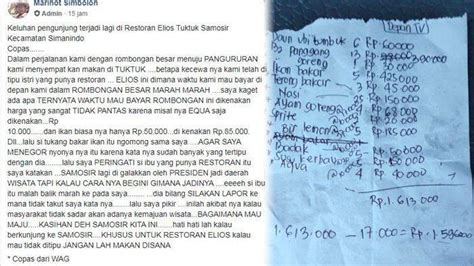 Marihot Simbolon
Admin • 15 jam
Keluhan pengunjung terjadi lagi di Restoran Elios Tuktuk Samosir
Kecamatan Simanindo
Copas....
Dalam perjalanan kami dengan rombongan besar menuju PANGURURAN
kami menyempat kan makan di TUKTUK.....betapa kecewa nya kami telah di
tipu istri yang punya restoran .... ELIOS ini dimana waktu kami mau bayar di
depan kami dalam ROMBONGAN BESAR MARAH MARAH ....saya kaget
ada apa TERNYATA WAKTU MAU BAYAR ROMBONGAN ini dikenakan
harga yang sangat TIDAK PANTAS karena misal nya EQUA saja
dikenakan....Rp
10.000......dan ikan biasa nya hanya Rp.50.000....di kenakan Rp.85.000.
Dll...lalu si tukang bakar ikan itu ngomong sama saya .. AGAR SAYA
MENEGOR nyonya nya itu karena kata nya sudah banyak yang tertipu
dengan dia........lalu saya PERINGATI si ibu yang punya RESTORAN itu
saya katakan ...SAMOSIR lagi di galakkan oleh PRESIDEN jadi daerah
WISATA TAPI KALAU CARA NYA BEGINI GIMANA JADINYA ....eeeeh si ibu
itu malah balik marah ke pada saya.........dia bilang SILAKAN LAPOR ke
mana tidak takut saya kata nya....lalu saya pikir ...inilah akibat nya kalau
masyarakat tidak sadar akan adanya kemajuan wisata...BAGAIMANA MAU
MAJU.....KASIHAN DEH SAMOSIR KITA INI......hati hati lah kalau
berkunjung ke SAMOSIR....KHUSUS UNTUK RESTORAN ELIOS kalau
mau tidak ditipu JANGAN LAH MAKAN DISANA
* Copas dari WAG
Daun ubi tumbuk 6 Rp.60000
Bp Panggang
goreng
Ikan bakar 5 Rp 425000
Teri
Nasi
Ayam goreng
Sprite
Bir
@
Rp.1.613.000
1.613.000 – 17.000 =